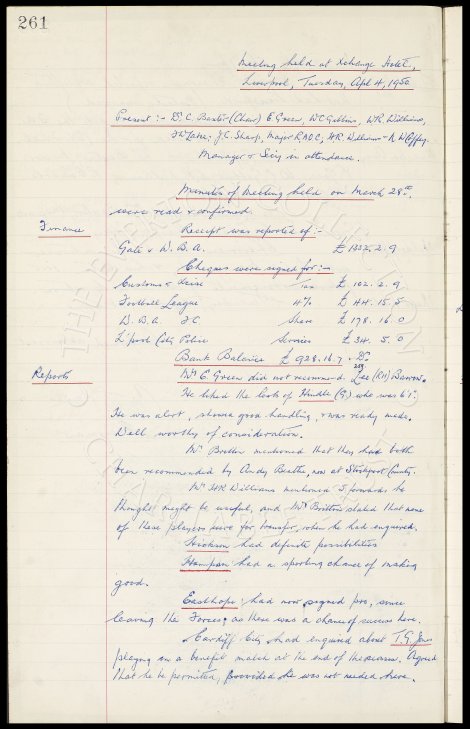 261
Meeting held at Xchange Hotel,
Liverpool, Tuesday, April 4, 1950
Present :- Dr. C. Baxter (Chair) E Green, W C Gibbins, W. R. Williams,
J. C. Sharp, Major R.A.D.C., H.R. Williams & N. W. Coffey.
Manager & Secy in attendance.
Minutes of Meeting held on March 28th,
were read & confirmed.
Finance
Receipt was reported of :-
Gate v W. B. A. £ 1332. 2. 9
Cheques were signed for :-
Customs & Excise Tax £ 102. 2. 9
Football League 4% £ 44. 15. 5
W. B. A. FC Share £ 178. 16. 0
L'pool City Police Services £ 34. 5. 0
Bank Balance £ 928. 16. 7 Dr.
Reports
Mr E. Green did not recommend Lee (RH) Barrow.
He liked the look of Hindle (G) who was 6'1".
He was alert, shewed good handling, & was ready made.
Well worthy of consideration.
Mr Britton mentioned that they had both
been recommended by Andy Beattie, now at Stockport County.
Mr H R Williams mentioned 3 forwards he
thought might be useful, and Mr Britton stated that none
of these players were for transfer, when he had enquired.
Hickson had definite possibilities
Hampson had a sporting chance of making
good.
Easthope had now signed pro, since
leaving the Forces, as there was a chance of success here.
Cardiff City had enquired about T. G. Jones
playing in a benefit match at the end of the season. Agreed
that he be permitted, provided he was not needed here.
THE EVERTON COLLECTION
CHAR